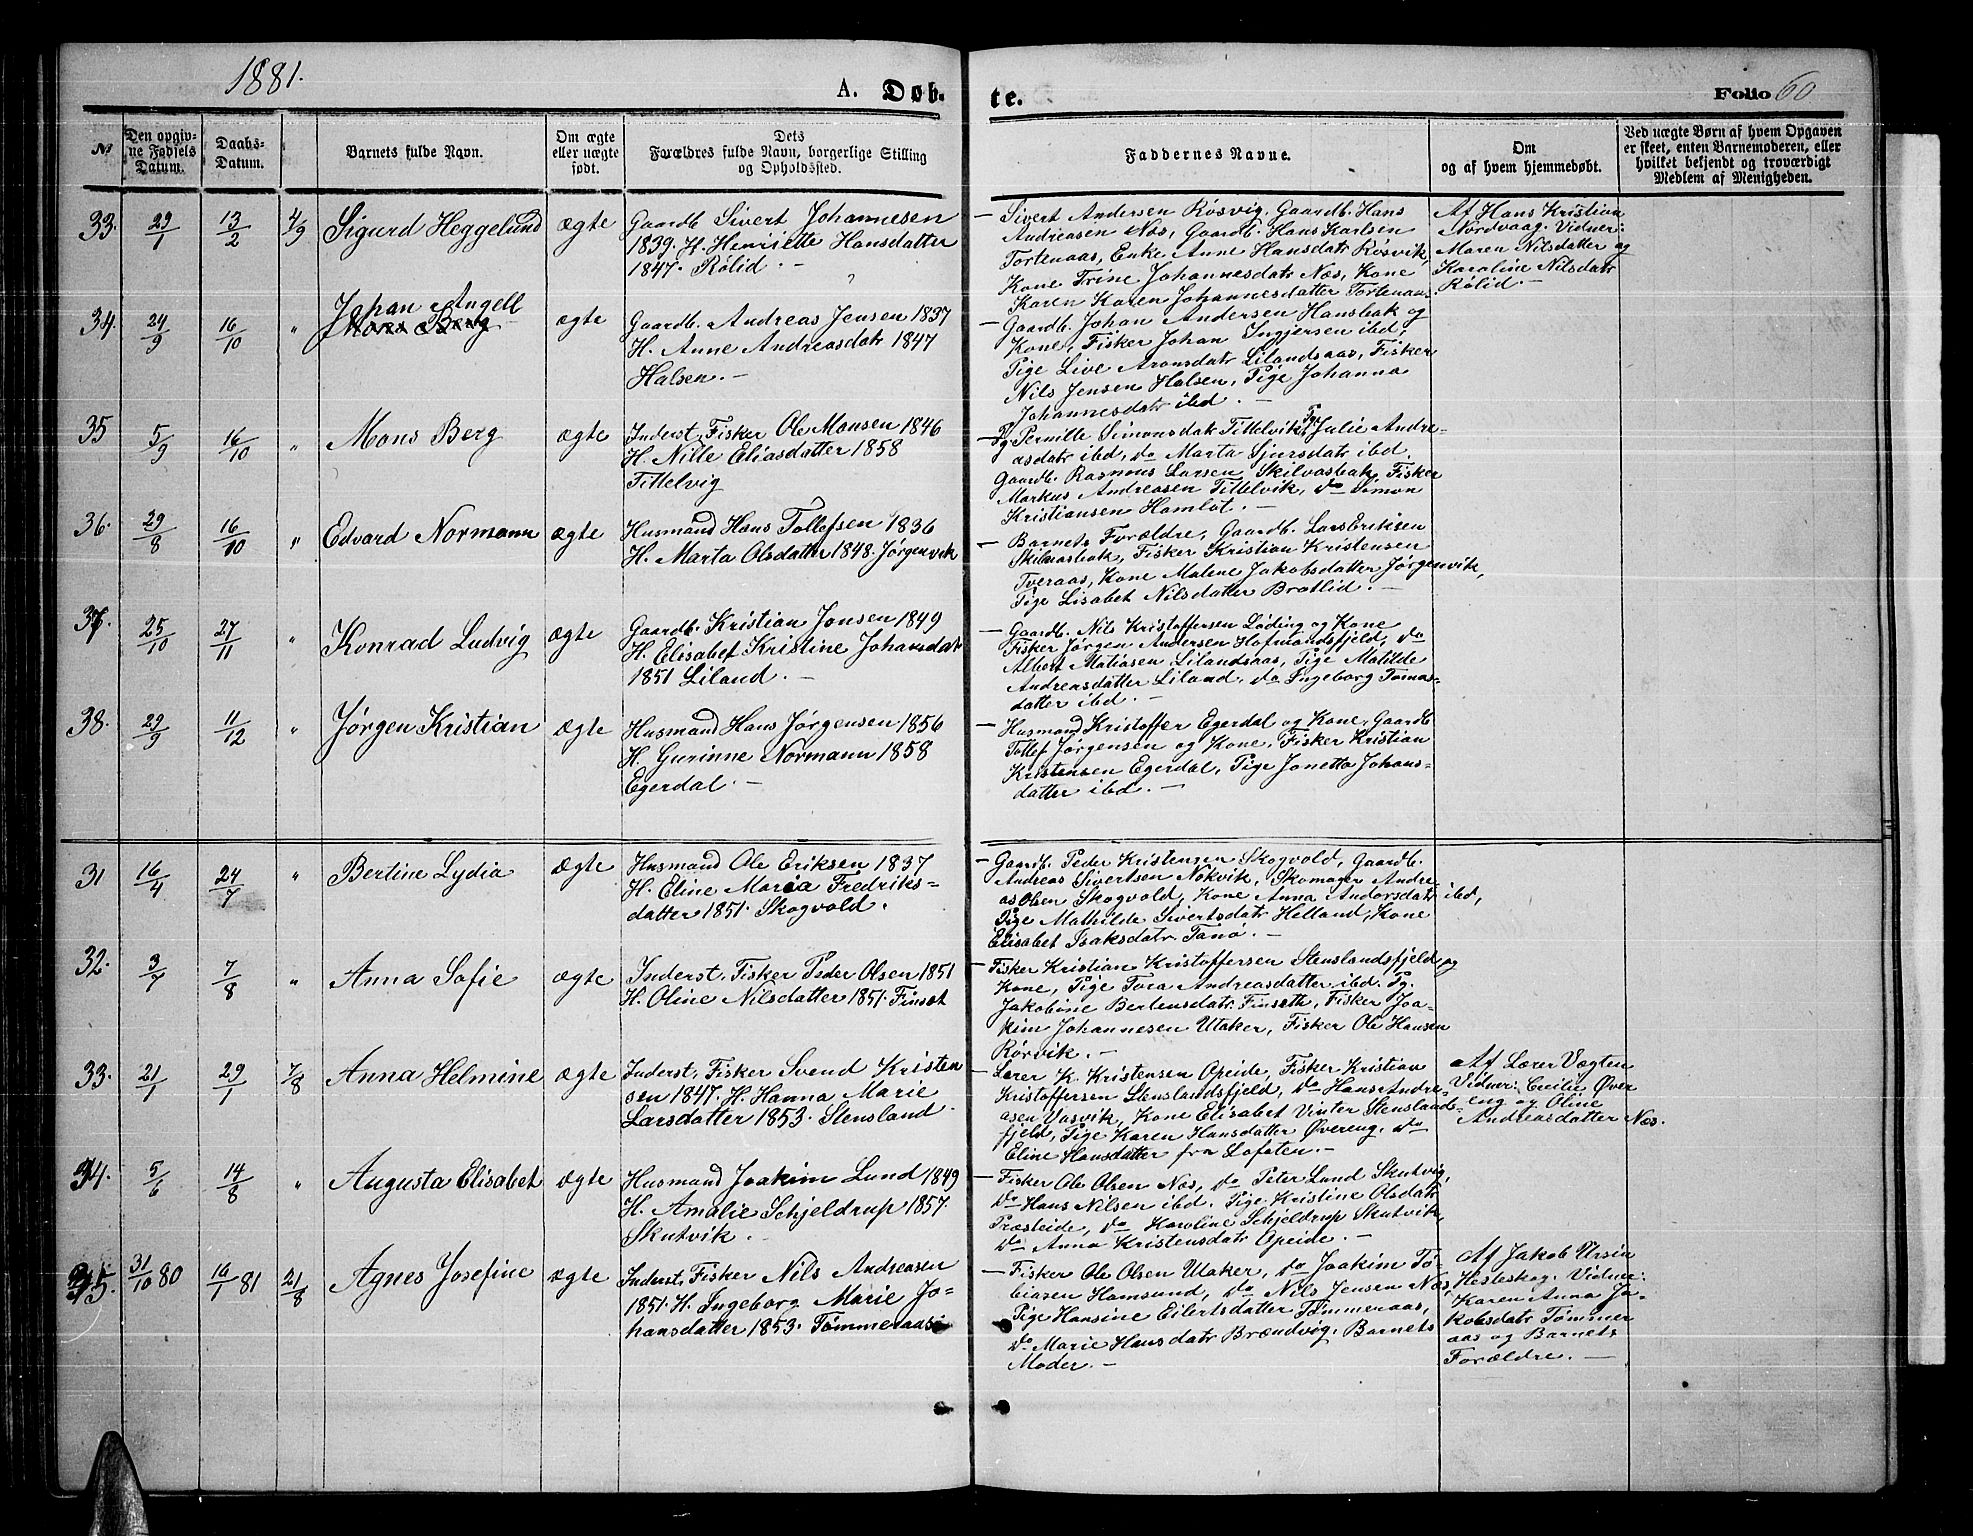 1881.
A. Døb-
te.
Folio 60
№
Den opgiv-
ne Fødsels
Datum.
Daabs-
Datum.
Barnets fulde Navn.
Om ægte
eller uægte
født.
Dets
Forældres fulde Navn, borgerlige Stilling
og Opholdssted.
Faddernes Navne.
Om
og af hvem hjemmedøbt.
Ved uægte Børn af hvem Opgaven
er skeet, enten Barnemoderen, eller
hvilket bekjendt og troværdigt
Medlem af Menigheden.
33. 29/1 13/2 4/9 Sigurd Heggelund ægte
Gaardb. Sivert Johannesen
1839. H. Henriette Hansdatter
1847. Rølid. -
- Sivert Andersen Røsvig, Gaardb. Hans
Andreasen Næs, Gaardb. Hans Karlsen
Tortenaas, Enke Anne Hansdatr Røsvik,
Kone Trine Johannesdatr Næs, Kone
Karen Karen Johannesdatter Tortenaas.
Af Hans Kristian
Nordvaag. Vidner:
Maren Nilsdatter og
Karoline Nilsdatr
Rølid. -
34. 24/9 16/10 " Johan Angell
Mons Berg
ægte
Gaardb. Andreas Jensen 1837
H. Anne Andreasdatr 1847
Halsen. -
- Gaardb. Johan Andersen Hansbak og
Kone, Fisker Johan Ingjersen ibd,
Pige Live Aronsdatr Lilandsaas, Fisker
Nils Jensen Halsen, Pige Johanna
Johannesdatr ibd. -
35 5/9 16/10 " Mons Berg ægte
Inderst, Fisker Ole Monsen 1846
H. Nille Eliasdatter 1858
Tittelvig
- Pg Pernille Simonsdatr Tittelvik, Pge Julie Andre-
asdatr ibd, do Marta Sjursdatr ibd,
Gaardb. Rasmus Larsen Skilvasbak, Fisker
Markus Andreasen Tittelvik, do Simon
Kristiansen Hamlot. -
36. 29/8 16/10 " Edvard Normann ægte
Husmand Hans Tollefsen 1836
H. Marta Olsdatter 1848. Jørgenvik
- Barnets Forældre, Gaardb. Lars Eriksen
Skilvasbak, Fisker Kristian Kristensen
Tveraas, Kone Malene Jakobsdatter Jørgenvik,
Pige Lisabet Nilsdatter Bratlid. -
37. 25/10 27/11 " Konrad Ludvig ægte
Gaardb. Kristian Jonsen 1849
H. Elisabet Kristine Johansdatr
1851 Liland. -
- Gaardb. Nils Kristoffersen Løding og Kone
Fisker Jørgen Andersen Hofmandsfjeld, do
Albert Matiasen Lilandsaas, Pige Matilde
Andreasdatter Liland, do Ingeborg Tomas-
datter ibd. -
38. 29/9 11/12 " Jørgen Kristian ægte
Husmand Hans Jørgensen 1856
H. Gurinne Normann 1858
Egerdal. -
- Husmand Kristoffer Egerdal og Kone, Gaardb.
Tollef Jørgensen og Kone, Fisker Kristian
Kristensen Egerdal, Pige Jonetta Johans-
datter ibd. -
31 16/4 24/7 " Bertine Lydia ægte
Husmand Ole Eriksen 1837
H. Eline Maria Fredriks-
datter 1851. Skogvold.
- Gaardb. Peder Kristensen Skogvold, Gaardb.
Andreas Sivertsen Nøkvik, Skomager Andre-
as Olsen Skogvold, Kone Anna Andorsdatr ibd,
Pige Mathilde Sivertsdatr Helland, Kone
Elisabet Isaksdatr. Tanø. -
32. 3/7 7/8 " Anna Sofie ægte
Inderst. Fisker Peder Olsen 1851
H. Oline Nilsdatter 1851. Finsæt
- Fisker Kristian Kristoffersen Stenslandsfjeld og
Kone, Pige Tora Andreasdatter ibd. Pg.
Jakobine Bertensdatr. Finseth, Fisker Joa-
kim Johannesen Utaker, Fisker Ole Hansen
Rørvik. -
33. 21/1 29/1 7/8 Anna Helmine ægte
Inderst, Fisker Svend Kristen
sen 1847. H. Hanna Marie
Larsdatter 1853. Stensland.
- Lærer K. Kristensen Opeide, Fisker Kristian
Kristoffersen Stenslandsfjeld, do Hans Andre-
asen Vasvik, Kone Elisabet Vinter Stenslands-
fjeld, Pige Karen Hansdatter Øvereng, do
Eline Hansdatter fra Lofoten. -
Af Lærer Vægten
Vidner: Cecilie Øver
eng og Oline
Andreasdatter Næs.
34. 5/6 14/8 " Augusta Elisabet ægte
Husmand Joakim Lund 1849
H. Amalie Schjeldrup 1857.
Skutvik. -
- Fisker Ole Olsen Næs, do Peter Lund Skutvig,
do Hans Nilsen ibd. Pige Kristine Olsdatr
Præsteide, do Karoline Schjeldrup Skutvik,
do Anna Kristensdatr Opeide. -
35. 31/10 80 16/1 81 21/8 Agnes Josefine ægte
Inderst, Fisker Nils Andreasen
1851. H. Ingeborg Marie Jo-
hansdatter 1853. Tømmeraas.
- Fisker Ole Olsen Utaker, do Joakim To-
biasen Hamsund, do Nils Jensen Næs,
Pige Hansine Eilertsdatter Tømmeraas,
do Marie Hansdatr Brændvog, Barnets
Moder. -
Af Jakob Ursin
Hesteskog. Vidner:
Karen Anna Ja-
kobsdatr Tømmer
aas og Barnets
Forældre. -